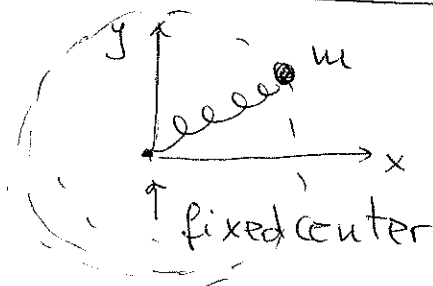 y
m
x
fixed center